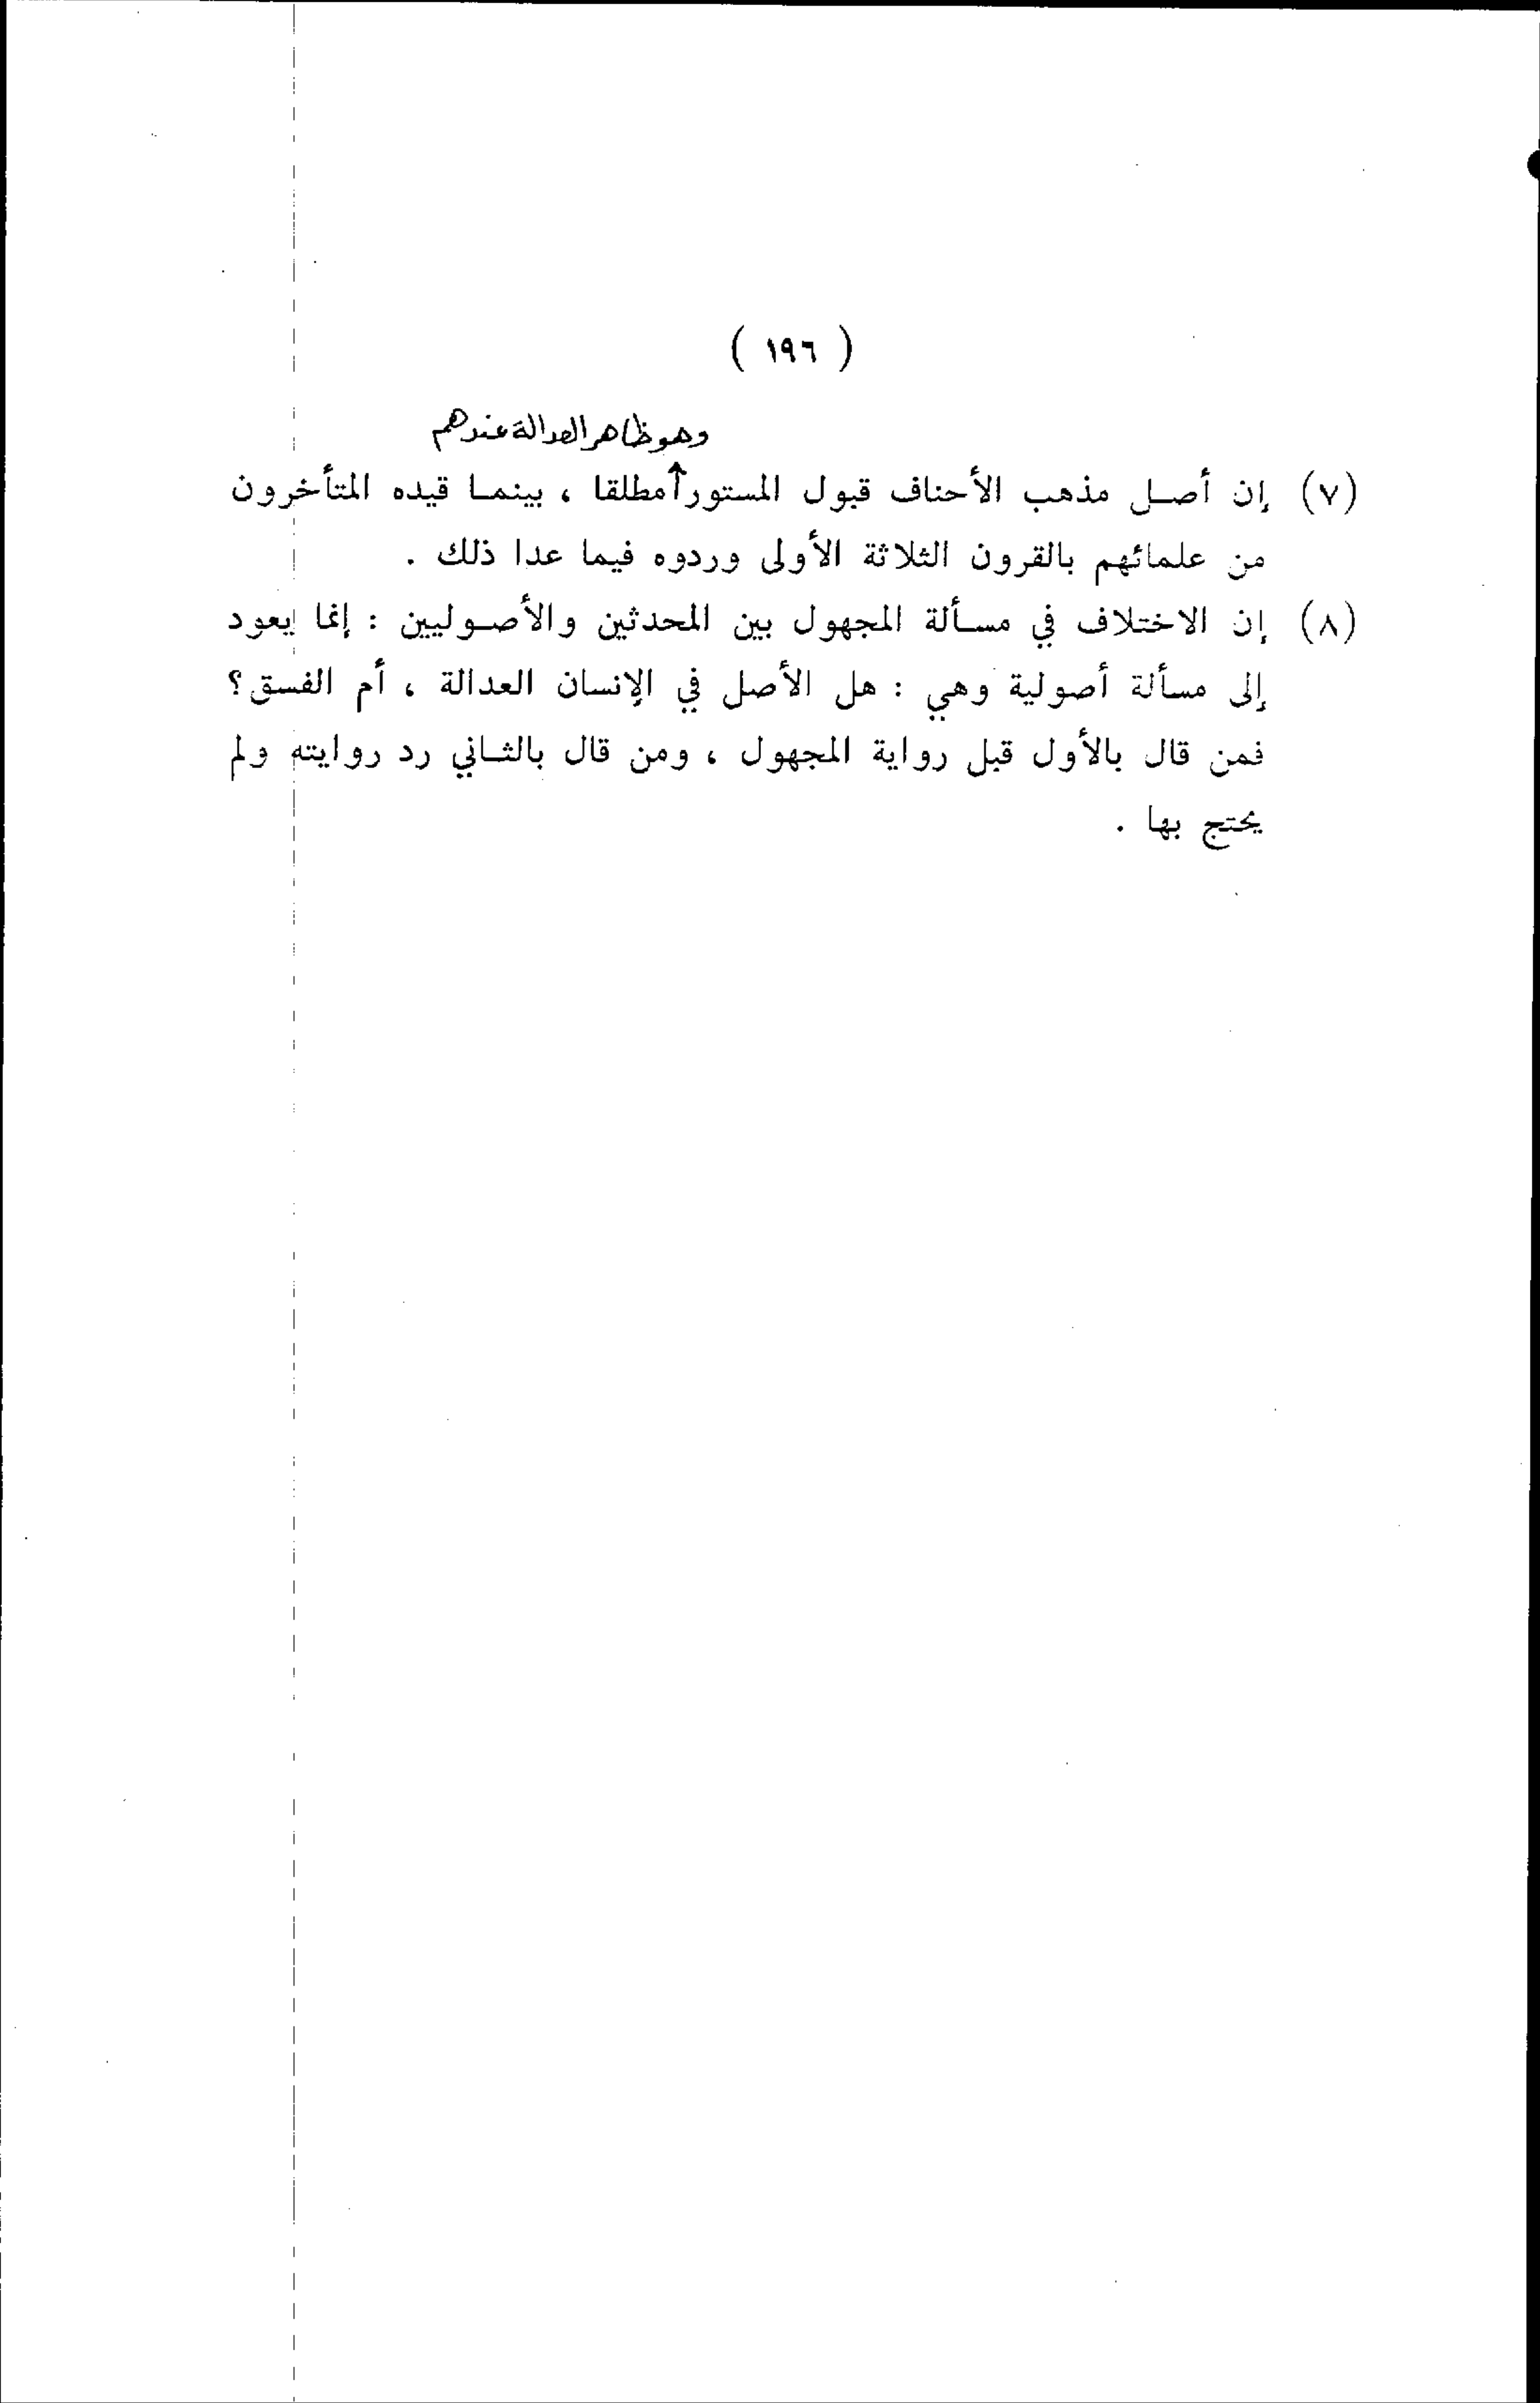 ( ١٩٦ )
وهو ظاهر العدالة عندهم
(٧) إن أصل مذهب الأحناف قبول المستور↑مطلقا ، بينما قيده المتأخرون
من علمائهم بالقرون الثلاثة الأولى وردوه فيما عدا ذلك .
(٨) إن الاختلاف في مسألة المجهول بين المحدثين والأصوليين : إنما يعود
إلى مسألة أصولية وهي : هل الأصل في الإنسان العدالة ، أم الفسق؟
فمن قال بالأول قبل رواية المجهول ، ومن قال بالثاني رد روايته ولم
يحتج بها .